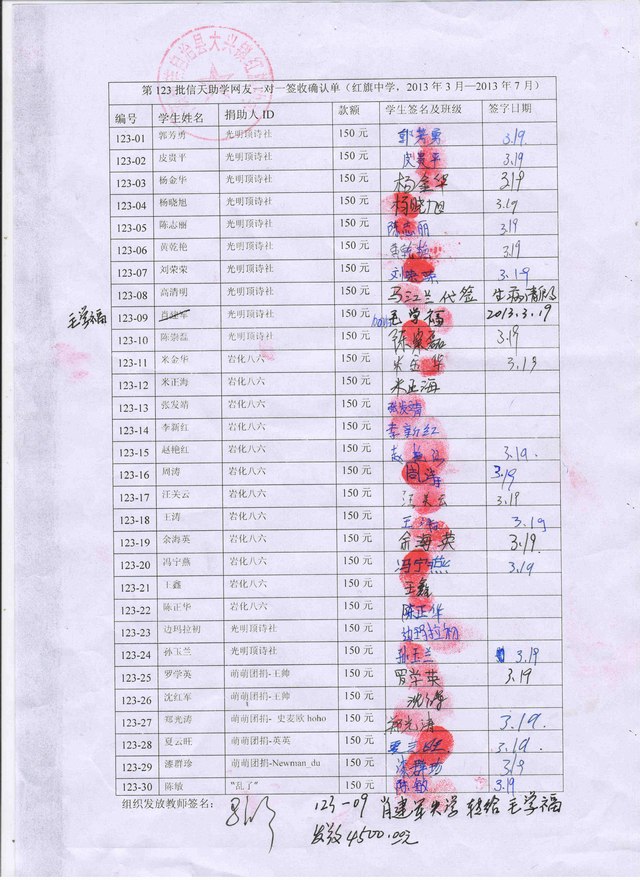 自治县大兴镇红旗
第 123 批信天助学网友一对一签收确认单（红旗中学，2013 年 3 月—2013 年 7 月）
编号 学生姓名 捐助人 ID 款额 学生签名及班级 签字日期
123-01 郭芳勇 光明顶诗社 150 元 郭芳勇 3.19
123-02 皮贵平 光明顶诗社 150 元 皮贵平 3.19
123-03 杨金华 光明顶诗社 150 元 杨金华 3.19
123-04 杨晓旭 光明顶诗社 150 元 杨晓旭 3.19
123-05 陈志丽 光明顶诗社 150 元 陈志丽 3.19
123-06 黄乾艳 光明顶诗社 150 元 黄乾艳 3.19
123-07 刘荣荣 光明顶诗社 150 元 刘荣荣 3.19
123-08 高清明 光明顶诗社 150 元 马江兰代签 生病请假
毛学福 123-09 肖建军 光明顶诗社 150 元 毛学福 2013.3.19
123-10 陈崇磊 光明顶诗社 150 元 陈崇磊 3.19
123-11 米金华 岩化八六 150 元 米金华 3.19
123-12 米正海 岩化八六 150 元 米正海
123-13 张发靖 岩化八六 150 元 张发靖
123-14 李新红 岩化八六 150 元 李新红
123-15 赵艳红 岩化八六 150 元 赵艳红 3.19.
123-16 周涛 岩化八六 150 元 周涛 3.19
123-17 汪关云 岩化八六 150 元 汪关云 3.19
123-18 王涛 岩化八六 150 元 王涛 3.19
123-19 余海英 岩化八六 150 元 余海英 3.19.
123-20 冯宁燕 岩化八六 150 元 冯宁燕 3.19
123-21 王鑫 岩化八六 150 元 王鑫
123-22 陈正华 岩化八六 150 元 陈正华
123-23 边玛拉初 光明顶诗社 150 元 边玛拉初
123-24 孙玉兰 光明顶诗社 150 元 孙玉兰 3.19
123-25 罗学英 萌萌团捐-王帅 150 元 罗学英 3.19
123-26 沈红军 萌萌团捐-王帅 150 元
123-27 郑光涛 萌萌团捐- 史麦欧 hoho 150 元 郑光涛 3.19.
123-28 夏云旺 萌萌团捐-英英 150 元 夏云旺 3.19.
123-29 漆群珍 萌萌团捐-Newman_du 150 元 漆群珍 3.19
123-30 陈敏 "乱了" 150 元 陈敏 3.19
组织发放教师签名： 123-09 肖建军失学 转给毛学福
发放4500.00元